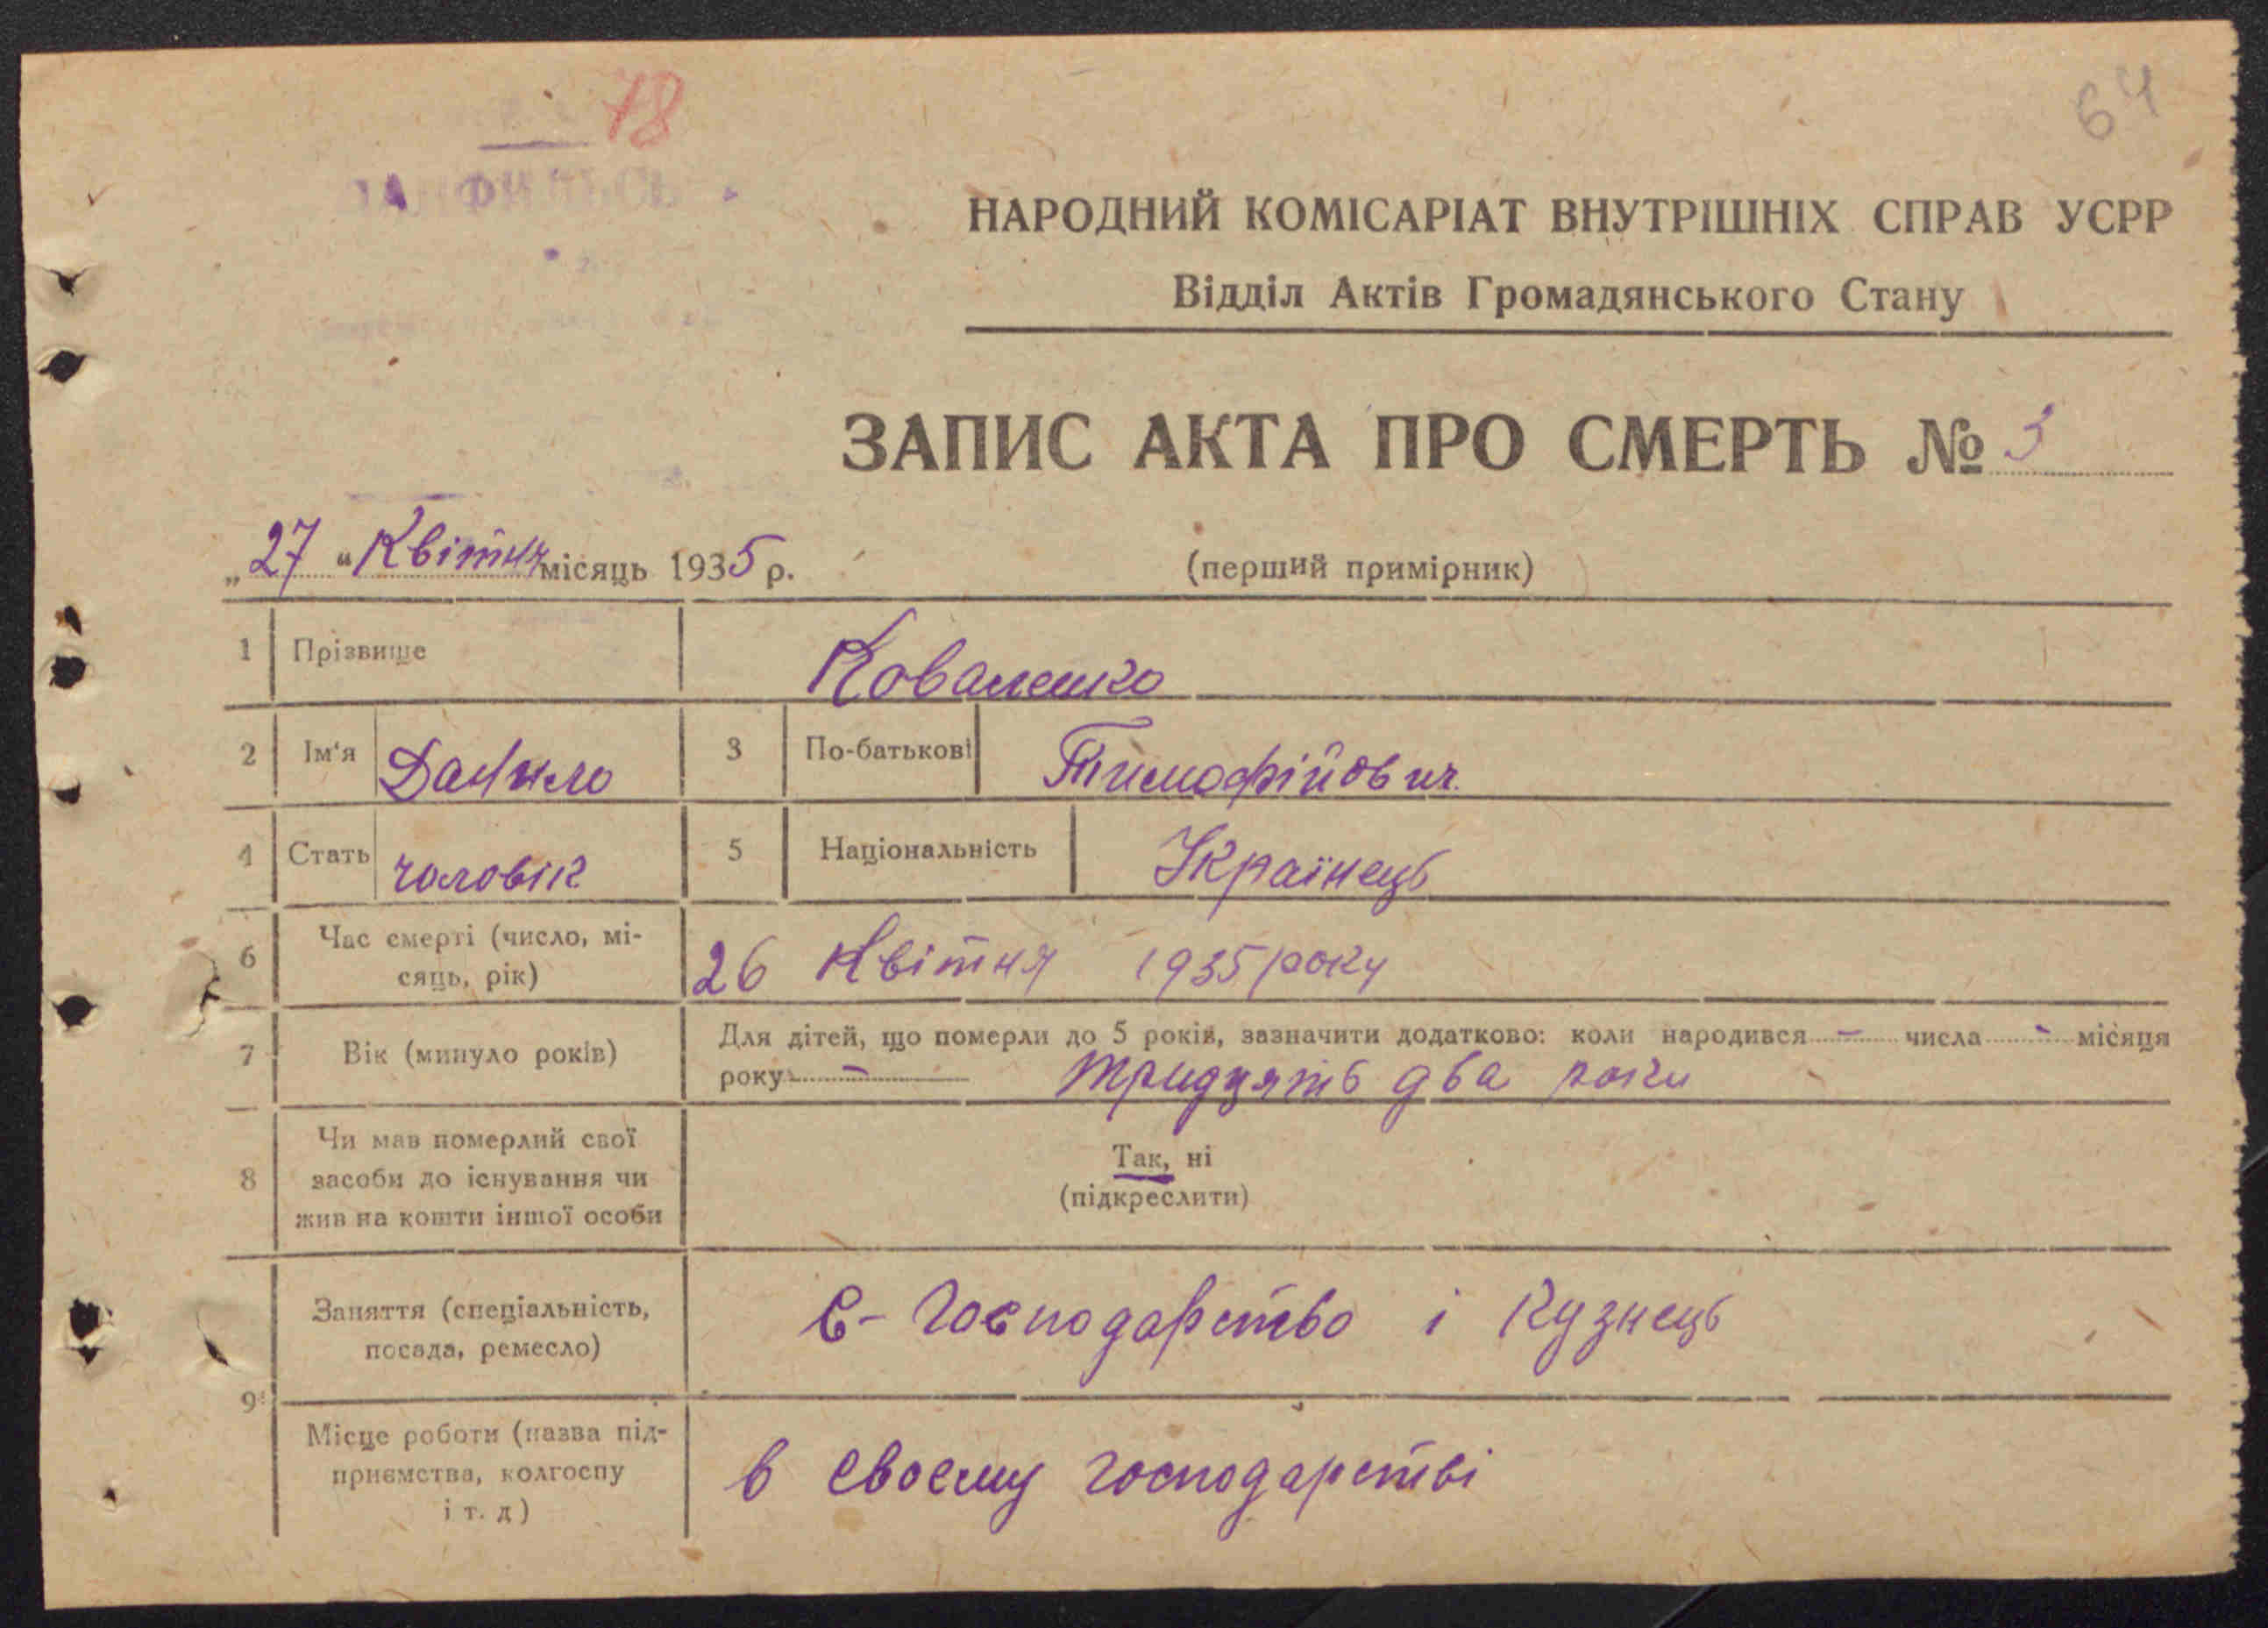 78
64
НАРОДНИЙ КОМІСАРІАТ ВНУТРІШНІХ СПРАВ УСРР
Відділ Актів Громадянського Стану
ЗАПИС АКТА ПРО СМЕРТЬ № 3
„27“ Квітня місяць 1935 р.
(перший примірник)
1 Прізвище Коваленко
2 Ім'я Данило 3 По-батькові Тимофійович
4 Стать чоловік 5 Національність Українець
6 Час смерті (число, мі-
сяць, рік) 26 Квітня 1935 року
7 Вік (минуло років) Для дітей, що померли до 5 років, зазначити додатково: коли народився - числа - місяця
року - тридцять два роки
8 Чи мав померлий свої
засоби до існування чи
жив на кошти іншої особи
Так, ні
(підкреслити)
9 Заняття (спеціальність,
посада, ремесло) С-господарство і кузнець
Місце роботи (назва під-
приємства, колгоспу
і т. д) в своєму господарстві